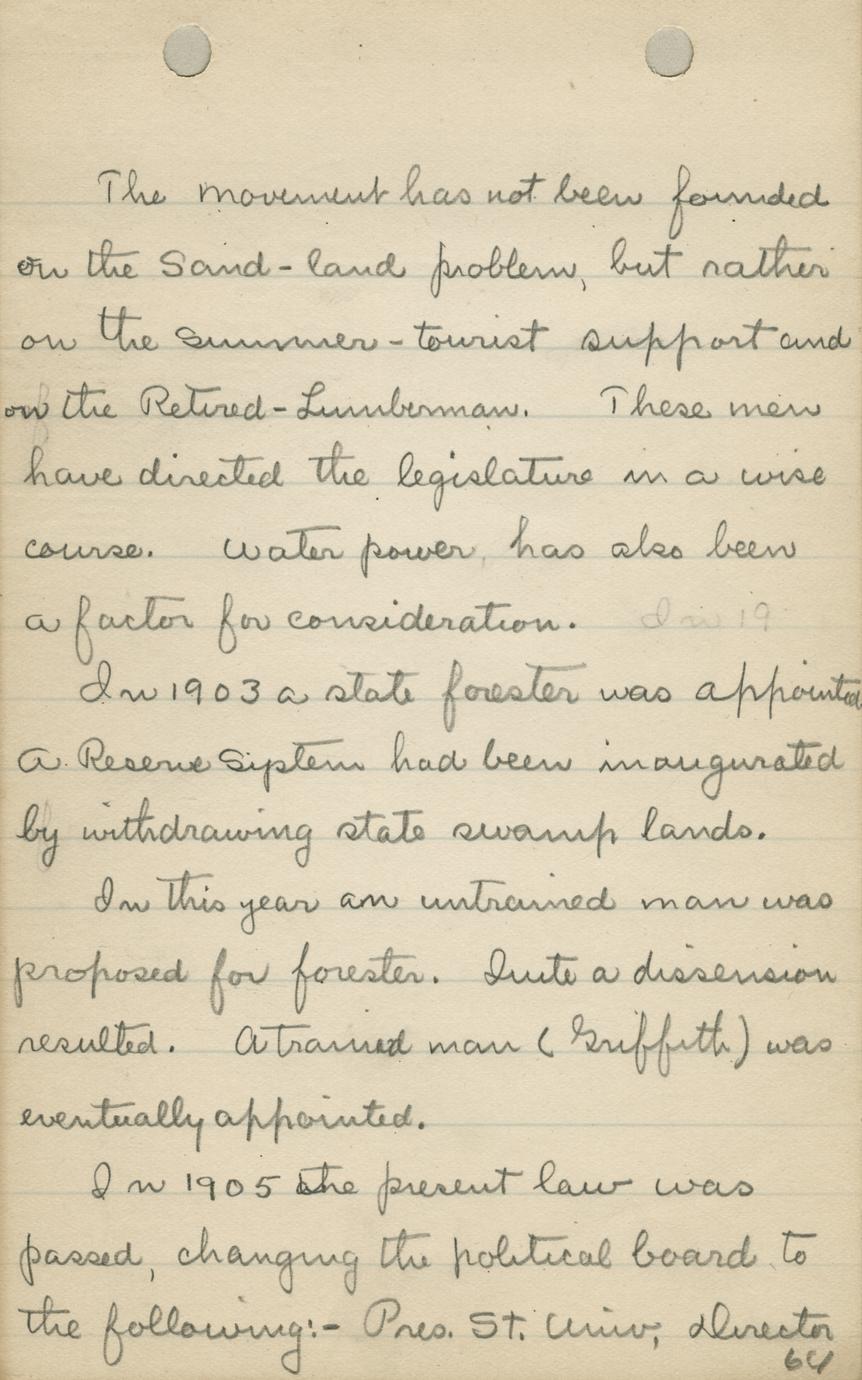 The movement has not been founded
on the Sand-land problem, but rather
on the summer-tourist support and
on the Retired-Lumberman. These men
have directed the legislature in a wise
course. Water power, has also been
a factor for consideration. In 19
In 1903 a state forester was appointed
A Reserve System had been inaugurated
by withdrawing state swamp lands.
In this year an untrained man was
proposed for forester. Quite a dissension
resulted. A trained man (Griffith) was
eventually appointed.
In 1905 the present law was
passed, changing the political board to
the following:- Pres. St. Univ; Director
64